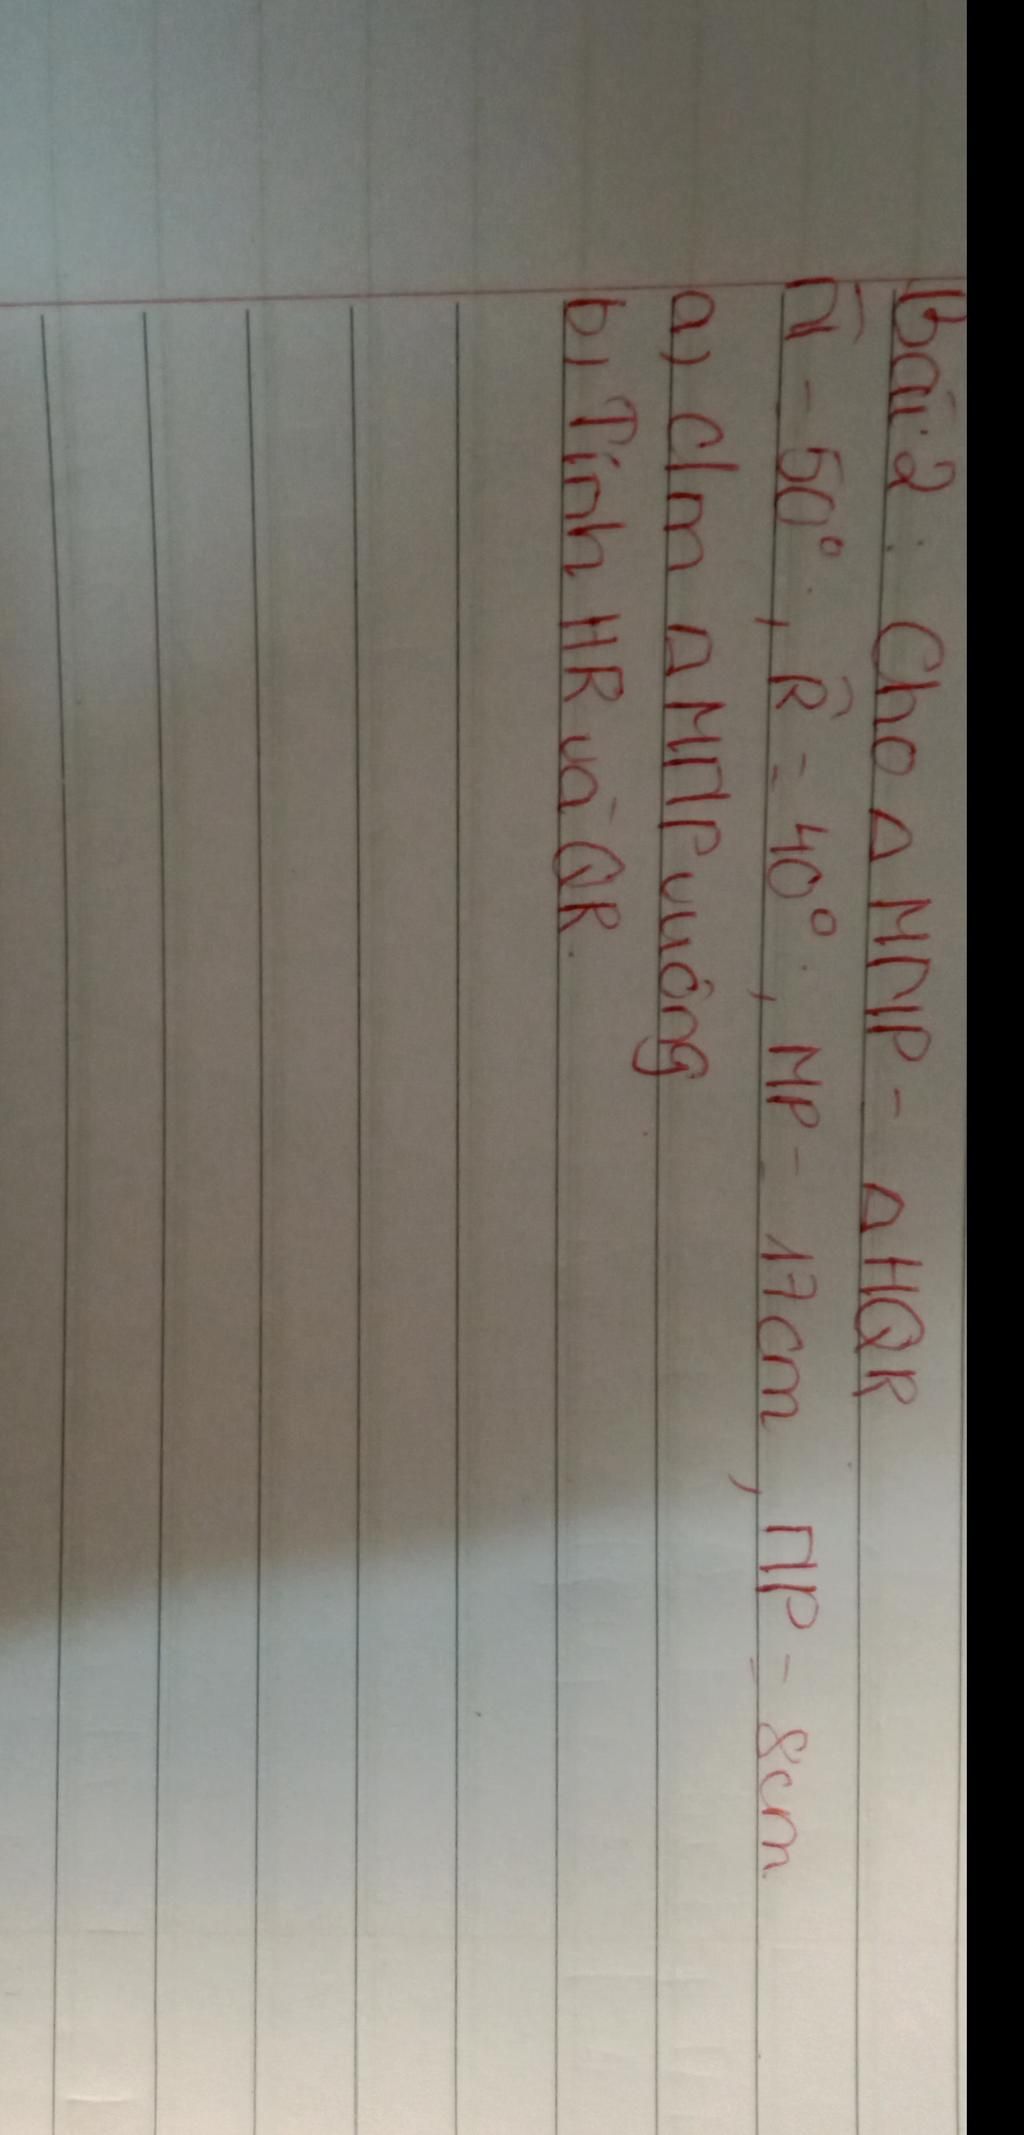 Bài 2: Cho Δ MNP = Δ HQR
N̂ = 50°, R̂ = 40°, MP = 17cm, NP = 8cm
a) c/m Δ MNP vuông
b) Tính HR và QR